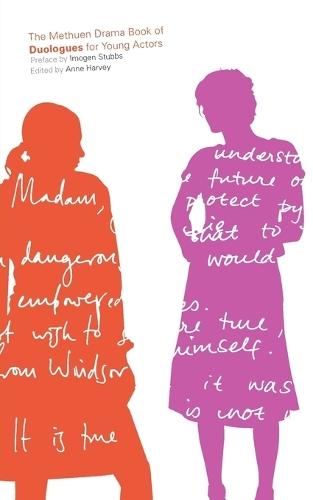 The Methuen Drama Book of
Duologues for Young Actors
Preface by Imogen Stubbs
Edited by Anne Harvey
Madam,
dangerou
empowered
t wish to s
rom Windsor
It is true
understa
e future o
rotect py
that to i
would
es.
re true,
himself.
it was
is not